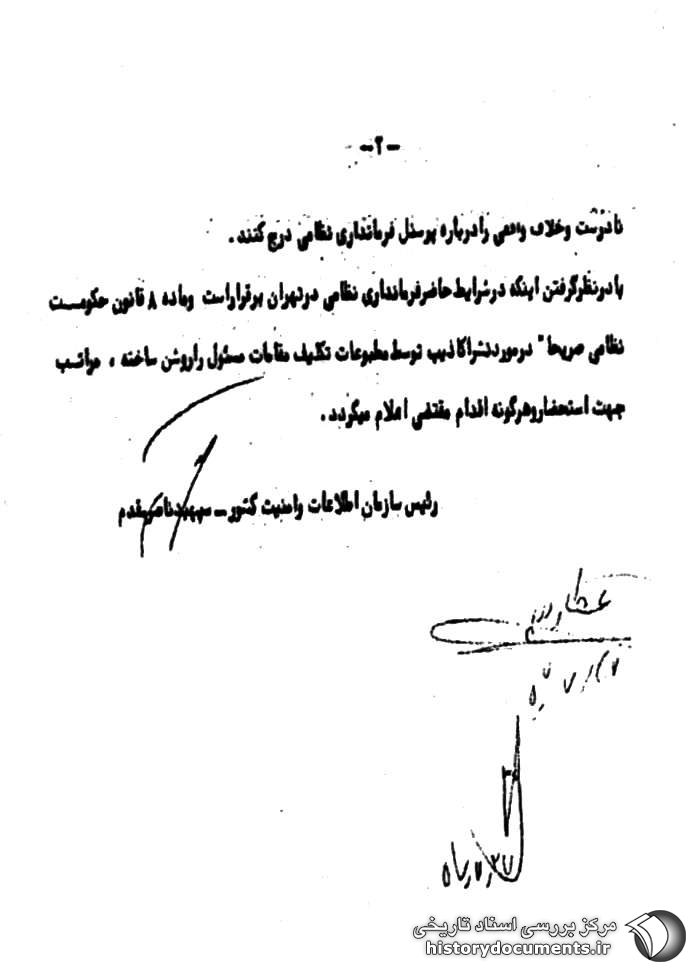 -۲-
نادرست وخلاف واقعی رادرباره پرسنل فرمانداری نظامی درج کنند .
بادرنظرگرفتن اینکه درشرایط حاضرفرمانداری نظامی درتهران برقراراست وماده ۸ قانون حکومست
نظامی صریحا" درموردنشراکاذیب توسط مطبوعات تکلیف مقامات مسئول راروشن ساخته ، مراتسب
جهت استحضاروهرگونه اقدام مقتضی اعلام میگردد .
رئیس سازمان اطلاعات وامنیت کشور – سپهبدناصرمقدم
مرکز بررسی اسناد تاریخی
historydocuments.ir